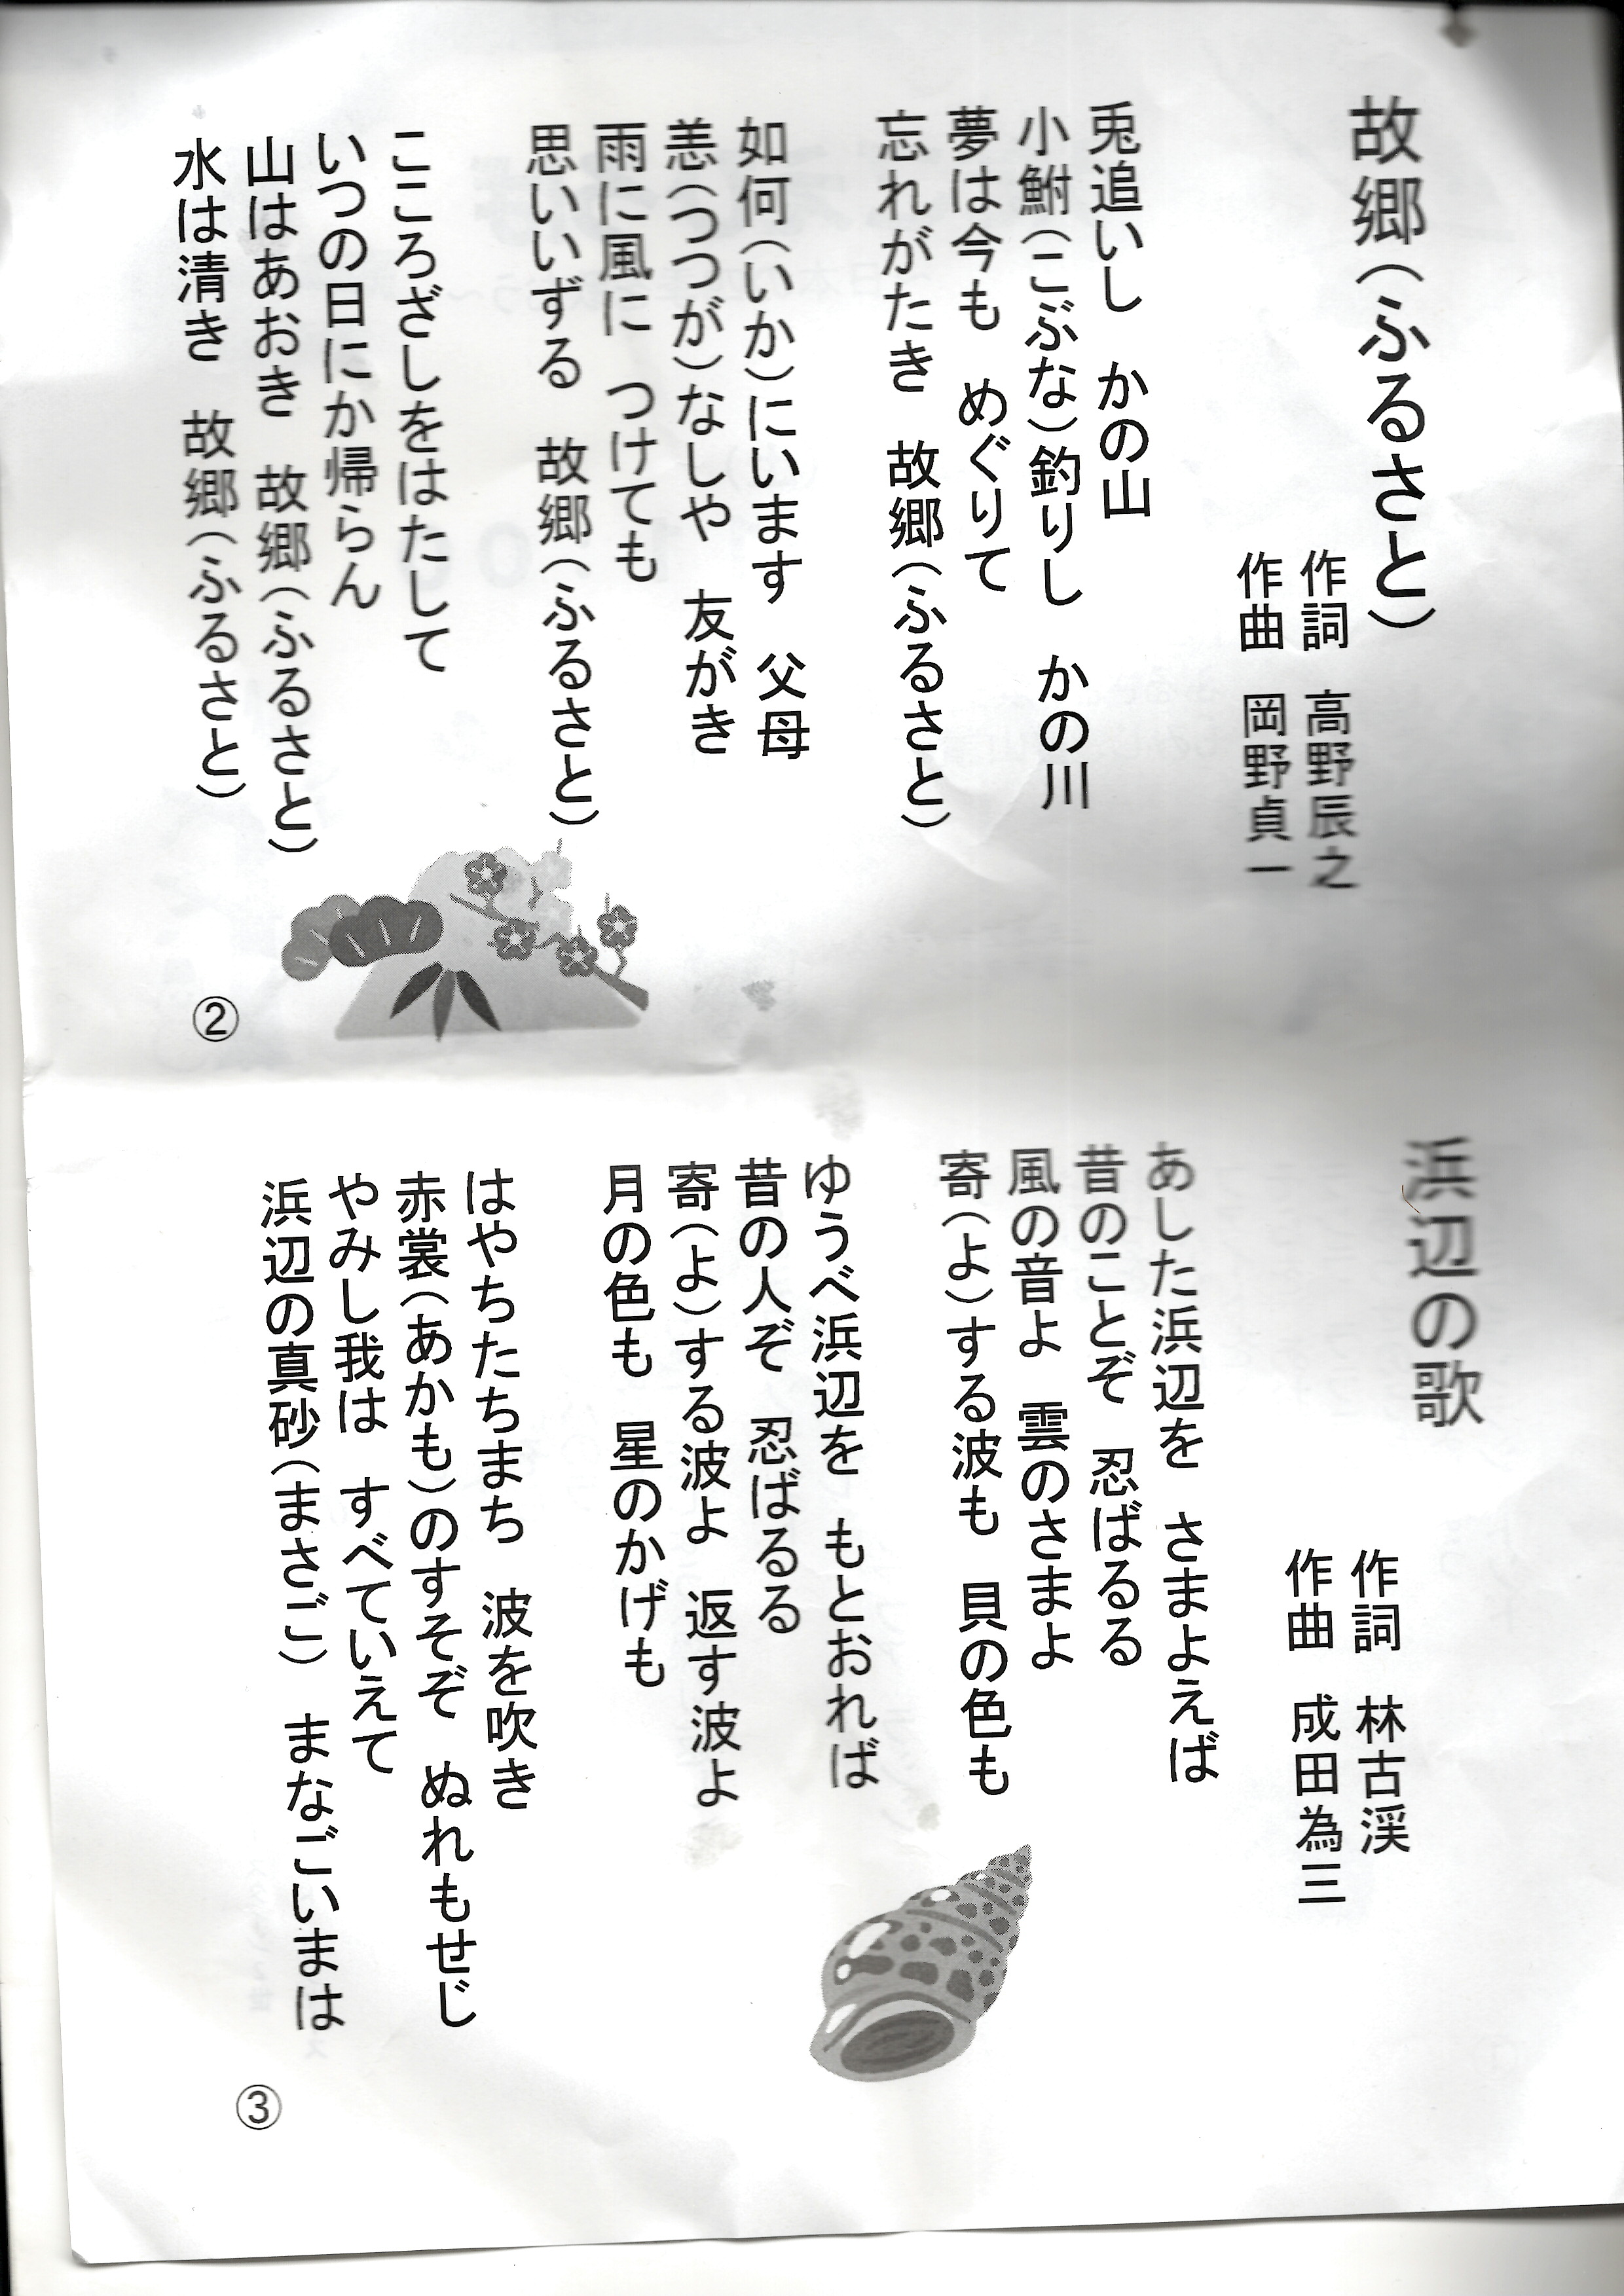 故郷（ふるさと）
作詞　高野辰之
作曲　岡野貞一
兎追いし　かの山
小鮒（こぶな）釣りし　かの川
夢は今も　めぐりて
忘れがたき　故郷（ふるさと）
如何（いか）にいます　父母
恙（つつが）なしや　友がき
雨に風に　つけても
思いいずる　故郷（ふるさと）
こころざしをはたして
いつの日にか帰らん
山はあおき　故郷（ふるさと）
水は清き　故郷（ふるさと）
②
浜辺の歌
作詞　林古渓
作曲　成田為三
あした浜辺を　さまよえば
昔のことぞ　忍ばるる
風の音よ　雲のさまよ
寄（よ）する波も　貝の色も
ゆうべ浜辺を　もとおれば
昔の人ぞ　忍ばるる
寄（よ）する波よ　返す波よ
月の色も　星のかげも
はやちたちまち　波を吹き
赤裳（あかも）のすそぞ　ぬれもせじ
やみし我は　すべていえて
浜辺の真砂（まさご）　まなごいまは
③